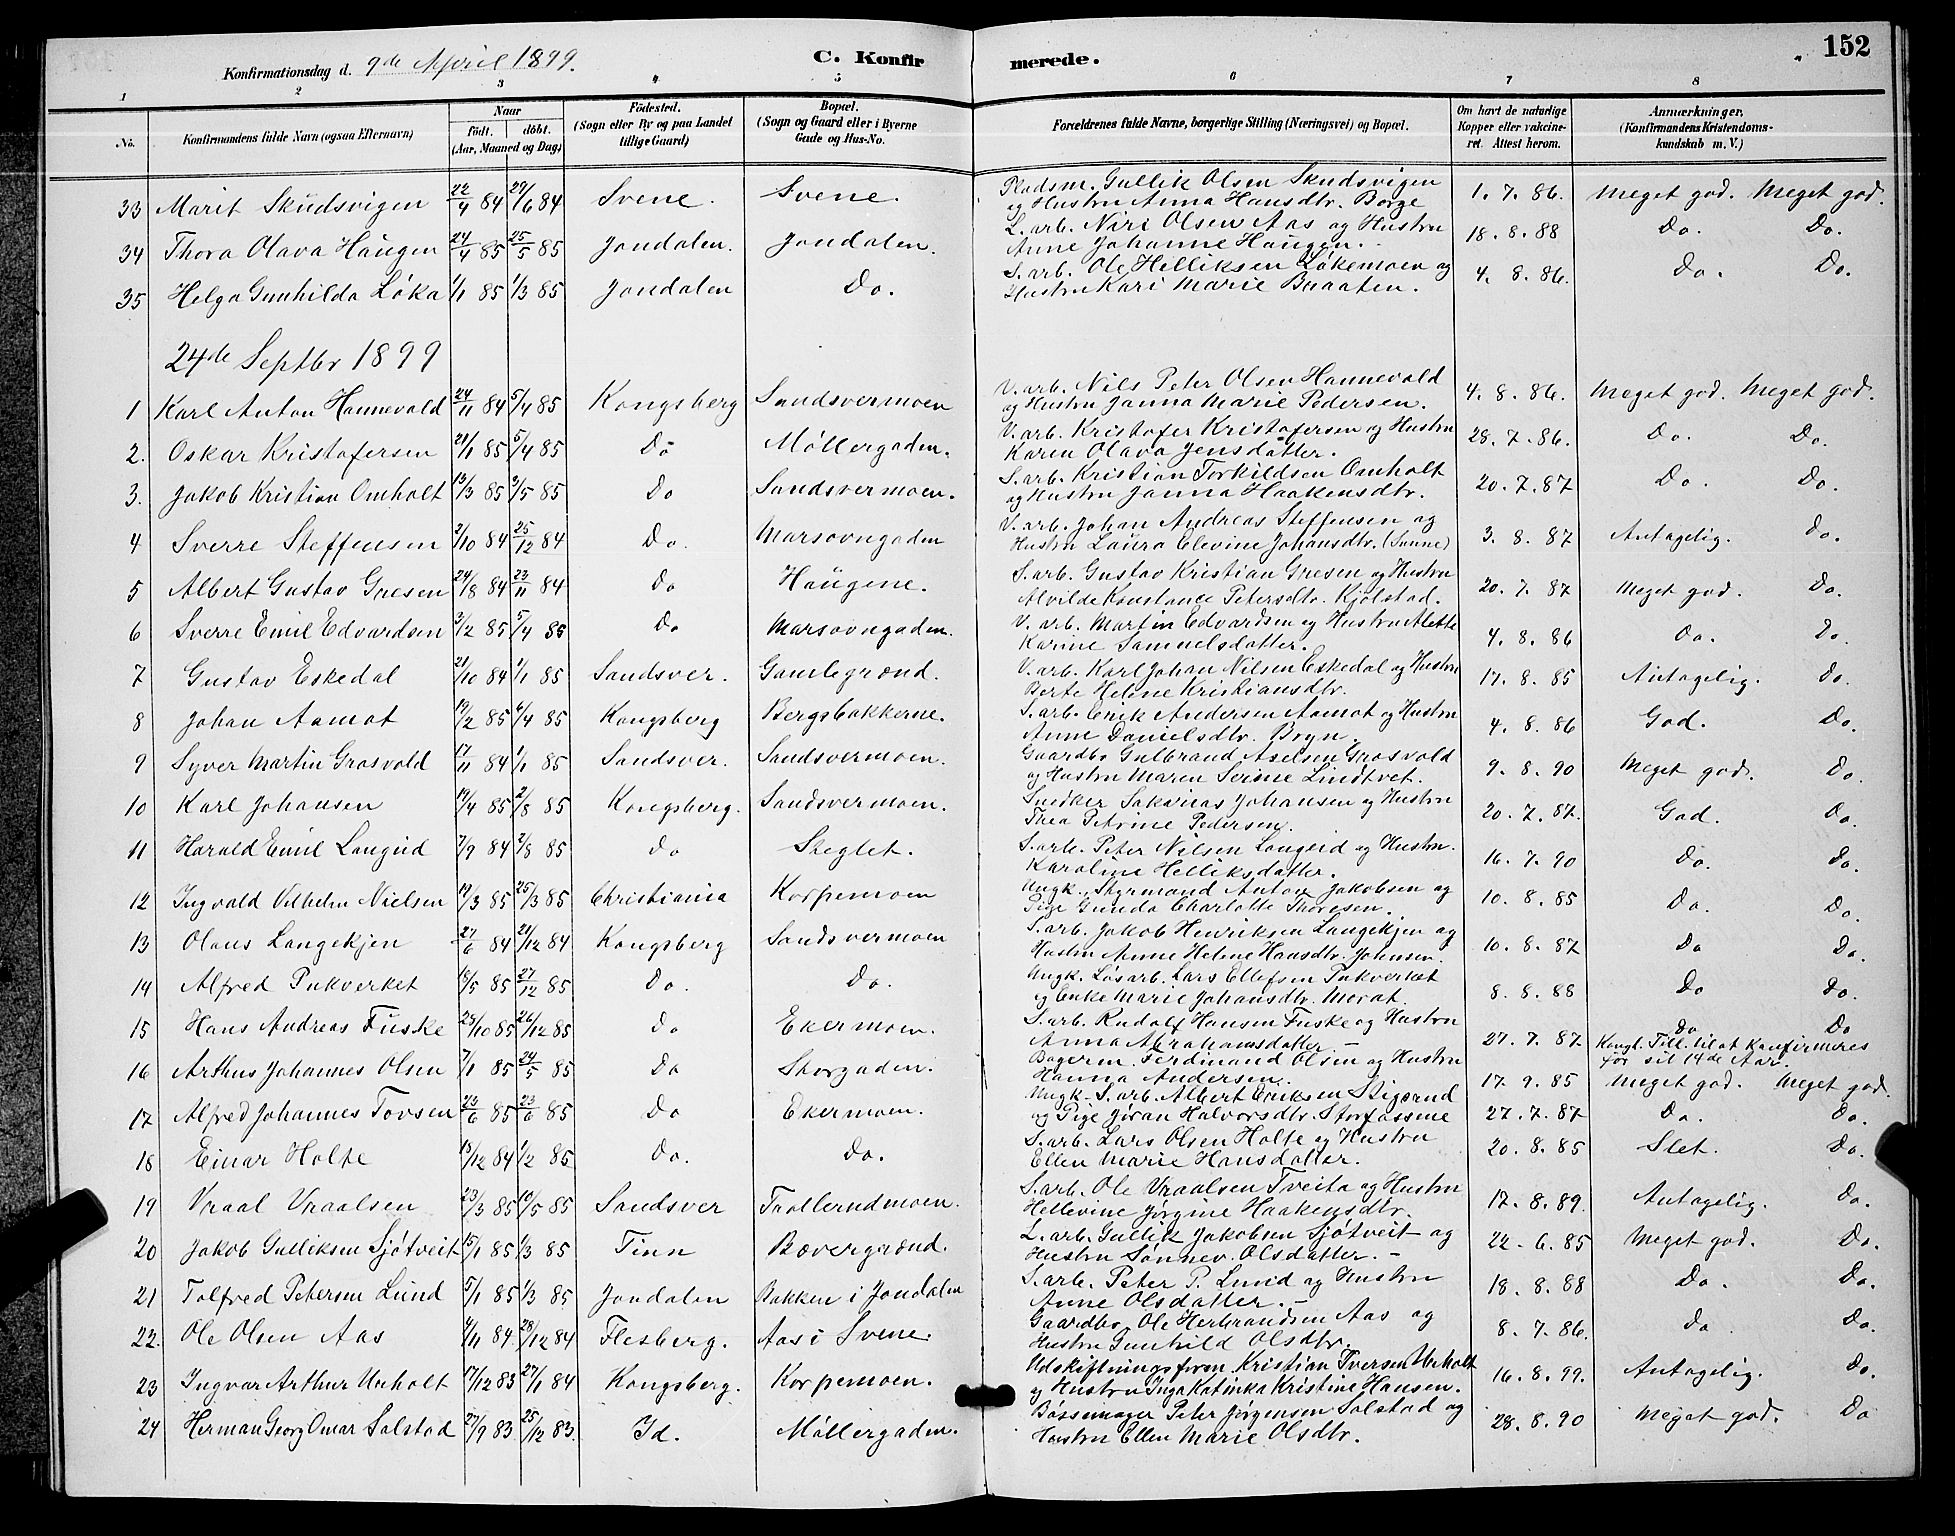 152
Konfirmationsdag d. 9de April 1899. C. Konfirmerede.
1 2 3 4 5 6 7 8
No. Konfirmandens fulde Navn (ogsaa Efternavn) Naar født. døbt. (Aar, Maaned og Dag) Fødested. (Sogn eller By og paa Landet tillige Gaard) Bopæl. (Sogn og Gaard eller i Byerne Gade og Hus-No. Forældrenes fulde Navne, borgerlige Stilling (Næringsvei) og Bopæl. Om havt de naturlige Kopper eller vakcineret. Attest herom. Anmærkninger, (Konfirmandens Kristendomskundskab m. V.)
33 Marit Skudsvigen 22/4 84 29/6 84 Svene. Svene. Pladsm. Gullik Olsen Skudsvigen og Hustru Anna Hansdtr. Borge 1. 7. 86. Meget god. Meget god.
34 Thora Olava Haugen 24/4 85 25/5 85 Jondalen. Jondalen. L. arb. Niri Olsen Aas og Hustru Anne Johanne Haugen. 18. 8. 88 Do. Do.
35 Helga Gunhilda Løka 1/1 85 1/3 85 Jondalen Do. S. arb. Ole Helliksen Løkemoen og Hustru Kari Marie Braaten. 4. 8. 86. Do. Do.
24de Septbr 1899
1 Karl Anton Hannevold 24/11 84 5/4 85 Kongsberg Sandsvermoen V. arb. Nils Peter Olsen Hannevold og Hustru Janna Marie Pedersen. 4. 8. 86. Meget god. Meget god.
2. Oskar Kristofersen 21/1 85 5/4 85 Do Møllergaden. V. arb. Kristofer Kristofersen og Hustru Karen Olava Jensdatter. 28. 7. 86. Do. Do.
3. Jakob Kristian Omholt 13/3 85 3/5 85 Do Sandsvermoen. S. arb. Kristian Torkildsen Omholt og Hustru Janna Haakensdtr. 20. 7. 87 Do. Do.
4 Sverre Steffensen 2/10 84 25/12 84 Do. Marsovngaden V. arb. Johan Andreas Steffensen og Hustru Laura Elevine Johansdtr. 3. 8. 87 Antagelig. Do.
5 Albert Gustav Gresen 24/8 84 23/11 84 Do Haugene. S. arb. Gustav Kristian Gresen og Hustru Alvilde Konstance Petersdtr. Kjølstad. 20. 7. 87 Meget god. Do.
6 Sverre Emil Edvardsen 3/2 85 5/4 85 Do Marsovngaden. V. arb. Martin Edvardsen og Hustru Alette Karine Samuelsdatter. 4. 8. 86 Do. Do.
7 Gustav Eskedal 21/10 84 1/1 85 Sandsver. Gamlegrænd. V. arb. Karl Johan Nilsen Eskedal og Hustru Berte Helene Kristiansdtr. 17. 8. 85 Antagelig. Do.
8 Johan Aamot 19/2 85 6/4 85 Kongsberg Bergsbakkerne. S. arb. Erik Andersen Aamot og Hustru Anne Danielsdtr. Bryn. 4. 8. 86 God. Do.
9 Syver Martin Grosvold 17/11 84 1/1 85 Sandsver. Sandsvermoen. Gaardbr. Gulbrand Axelsen Grosvold og Hustru Maren Serine Lindtvet. 9. 8. 90 Meget god. Do.
10 Karl Johansen 19/4 85 2/8 85 Kongsberg. Sandsvermoen. Snedker Sakarias Johansen og Hustru Thea Petrine Pedersen. 20. 7. 87. God. Do.
11 Harald Emil Langeid 7/9 84 2/8 85 Do Steglet. S. arb. Peter Nilsen Langeid og Hustru Karoline Helliksdatter. 16. 7. 90 Do. Do.
12 Ingvald Vilhelm Nielsen 19/3 85 25/3 85 Christiania Korpemoen Ungk. Styrmand Anton Jakobsen og Pige Gunda Charlotte Thoresen. 10. 8. 85 Do. Do.
13 Olaus Langekjen 27/6 84 21/12 84 Kongsberg Sandsvermoen S. arb. Jakob Henriksen Langekjen og Hustru Anne Helene Hansdtr. Johnsen. 10. 8. 87 Do Do.
14 Alfred Pukverket 18/5 85 27/12 85 Do. Do. Ungk. Løsarb. Lars Ellefsen Pukverket og Enke Marie Johansdtr. Morat. 8. 8. 88 Do Do.
15 Hans Andreas Fuske 25/10 85 26/12 85 Do Ekermoen. S. arb. Rudolf Hansen Fuske og Hustru Anna Abrahamsdatter 27. 7. 87 Do Do Kongl. Till. til at konfirmeres før sit 14de Aar.
16 Arthur Johannes Olsen 7/1 85 24/5 85 Do Storgaden. Bagerm. Ferdinand Olsen og Hustru Hanna Andersen. 17. 9. 85 Meget god. Meget god.
17 Alfred Johannes Tovsen 23/6 85 23/6 85 Do Ekermoen. Ungk. S. arb. Albert Eriksen Stigerud og Pige Jøran Halvorsdtr. Storfossene 27. 7. 87 Do. Do.
18 Einar Holte 13/12 84 1/2 85 Do. Do. S. arb. Lars Olsen Holte og Hustru Ellen Marie Hansdatter. 20. 8. 85 Slet. Do.
19 Vraal Vraalsen 23/3 85 10/5 85 Sandsver Trollerudmoen. S. arb. Ole Vraalsen Tveita og Hustru Hellevine Jørgine Haakensdtr. 17. 8. 89. Antagelig. Do.
20 Jakob Gulliksen Sjøtveit 15/1 85 1/3 85 Tinn Bævergrænd. L. arb. Gullik Jakobsen Sjøtveit og Hustru Sønnev. Olsdatter. 22-6. 85 Meget god. Do.
21 Tolfred Petersen Lund 5/1 85 1/3 85 Jondalen Bakken i Jondalen S. arb. Peter P. Lund og Hustru Anne Olsdatter. 18. 8. 88 Do. Do.
22. Ole Olsen Aas 4/11 84. 28/12 84 Flesberg. Aas i Svene. Gaardbr. Ole Herbrandsen Aas og Hustru Gunhild Olsdtr. 8. 7. 86. Do Do.
23 Ingvar Arthur Unholt 17/12 83 27/1 84 Kongsberg. Korpemoen. Udskiftningsform. Kristian Iversen Unholt og Hustru Inga Katinka Kristine Hansen. 16. 8. 99. Antagelig. Do.
24 Herman Georg Omar Solstad 27/9 83 25/12 83. Id. Møllergaden. Bøssemager Peter Jørgensen Solstad og Hustru Ellen Marie Olsdtr. 28. 8. 90 Meget god. Do